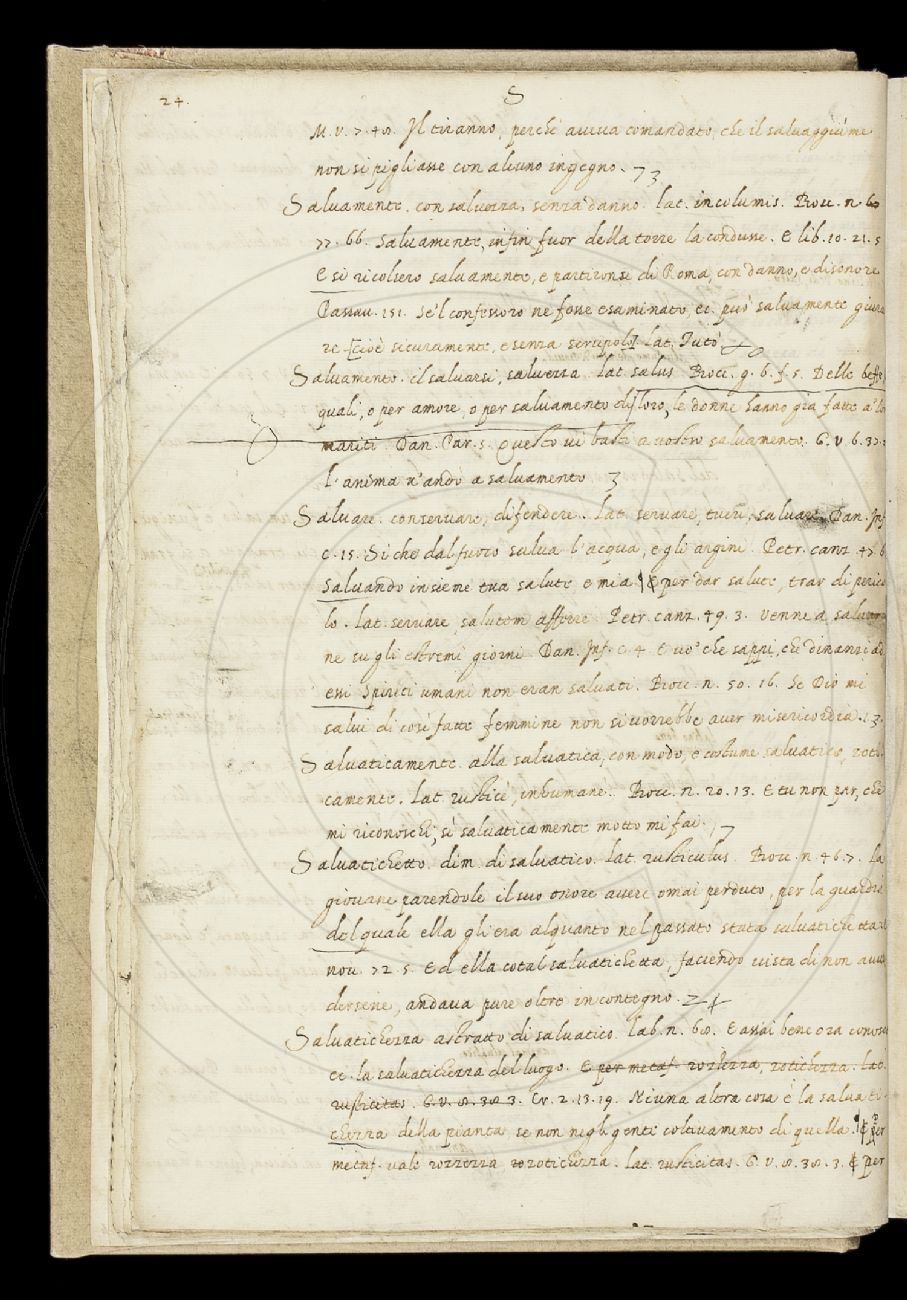 24.
S
M. V. 7. 48. Il tiranno, perchè aueua comandato, che il saluaggiume
non si pigliasse con alcuno ingegno. 73
Saluamente. con saluezza, senza danno. lat. incolumis. Bocc. n. 60
77. 66. Saluamente, infin fuor della torre la condusse. E lib. 10. 21. 5
E si ricolsero saluamente, e partironsi di Roma, con danno, e disonore
Passau. 151. Se'l confessoro ne fosse esaminato, ec. può saluamente giura
re [cioè sicuramente, e senza scrupolo] lat. Tutò.
Saluamento. il saluarsi, saluezza. lat. salus Bocc. g. 6. f. 5. Delle beffe,
quali, o per amore, o per saluamento di loro, le donne hanno già fatte a' lo
mariti. Dan. Par. 5. Questo ui basti a uostro saluamento. G. V. 6. 37.
l'anima n'andò a saluamento 3
Saluare. conseruare, difendere. lat. seruare, tueri, saluare. Dan. Inf
c. 15. Si che dal fuoco salua l'acqua, e gli argini. Petr. canz. 47. 6
Saluando insieme tua salute e mia. ¶ E per dar salute, trar di perico
lo. lat. seruare, salutem afferre. Petr. canz. 49. 3. Venne a saluar
ne su gli estremi giorni. Dan. Inf. c. 4. E uo' che sappi, che dinanzi ad
essi Spiriti umani non eran saluati. Bocc. n. 50. 16. Se Dio mi
salui di così fatte femmine non si uorrebbe auer misericordia. 13.
Saluaticamente. alla saluatica, con modo, e costume saluatico, roti
camente. lat. rusticè, inhumanè. Bocc. n. 20. 13. E tu non par, che
mi riconoschi, sì saluaticamente motto mi fai. 7
Saluatichetto. dim. di saluatico. lat. rusticulus. Bocc. n. 46. 7. La
giouane parendole il suo onore auere omai perduto, per la guardia
del quale ella gli era alquanto nel passato stata saluatichetta. E
nou. 72. 5. Ed ella cotal saluatichetta, facendo uista di non aue
dersene, andaua pure oltre in contegno. 24
Saluatichezza astratto di saluatico. Lab. n. 68. E assai bene ora conosco
ec. la saluatichezza del luogo. E per metaf. rozzezza, rotichezza. lat.
rusticitas. G. V. 8. 38. 3. Cr. 2. 13. 19. Niuna altra cosa è la saluati
chezza della pianta, se non negligente coltiuamento di quella. ¶ E per
metaf. vale rozzezza rotichezza. lat. rusticitas. G. V. 8. 38. 3. ¶ per